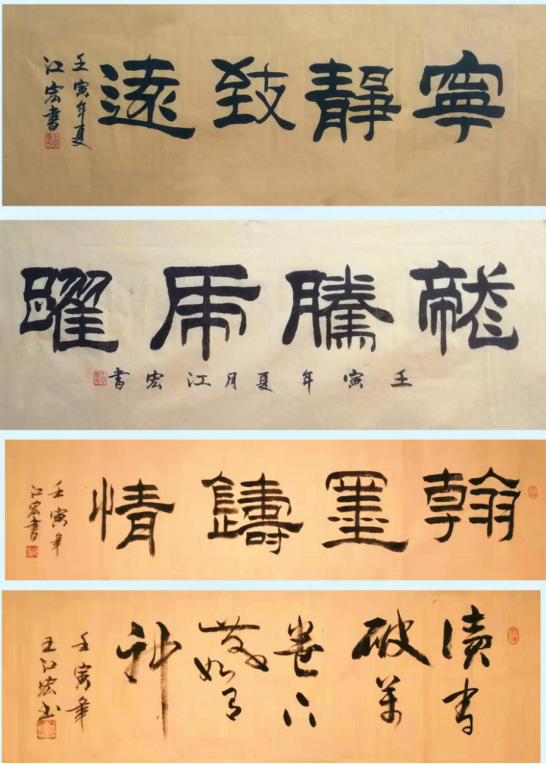 寧靜致遠
壬寅年夏
江宏書
龍騰虎躍
壬寅年夏月江宏書
翰墨鑄情
壬寅年
江宏書
读书
破萬
卷下
筆如有
神
壬寅年
王江宏书